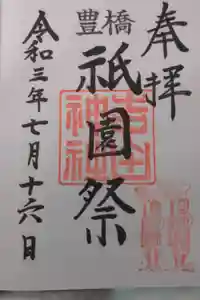 奉拝
豊橋
祇園祭
吉田
神社
令和三年七月十六日